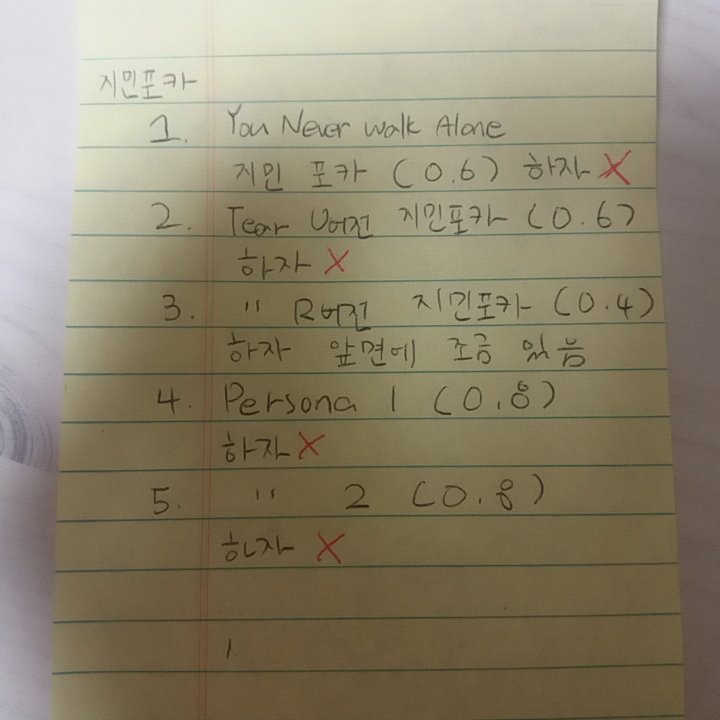 지민포카
1. You Never walk Alone
지민 포카 (0.6) 하자 X
2. Tear U버전 지민포카 (0.6)
하자 X
3. " R버전 지민포카 (0.4)
하자 앞면에 조금 있음
4. Persona 1 (0.8)
하자 X
5. " 2 (0.8)
하자 X